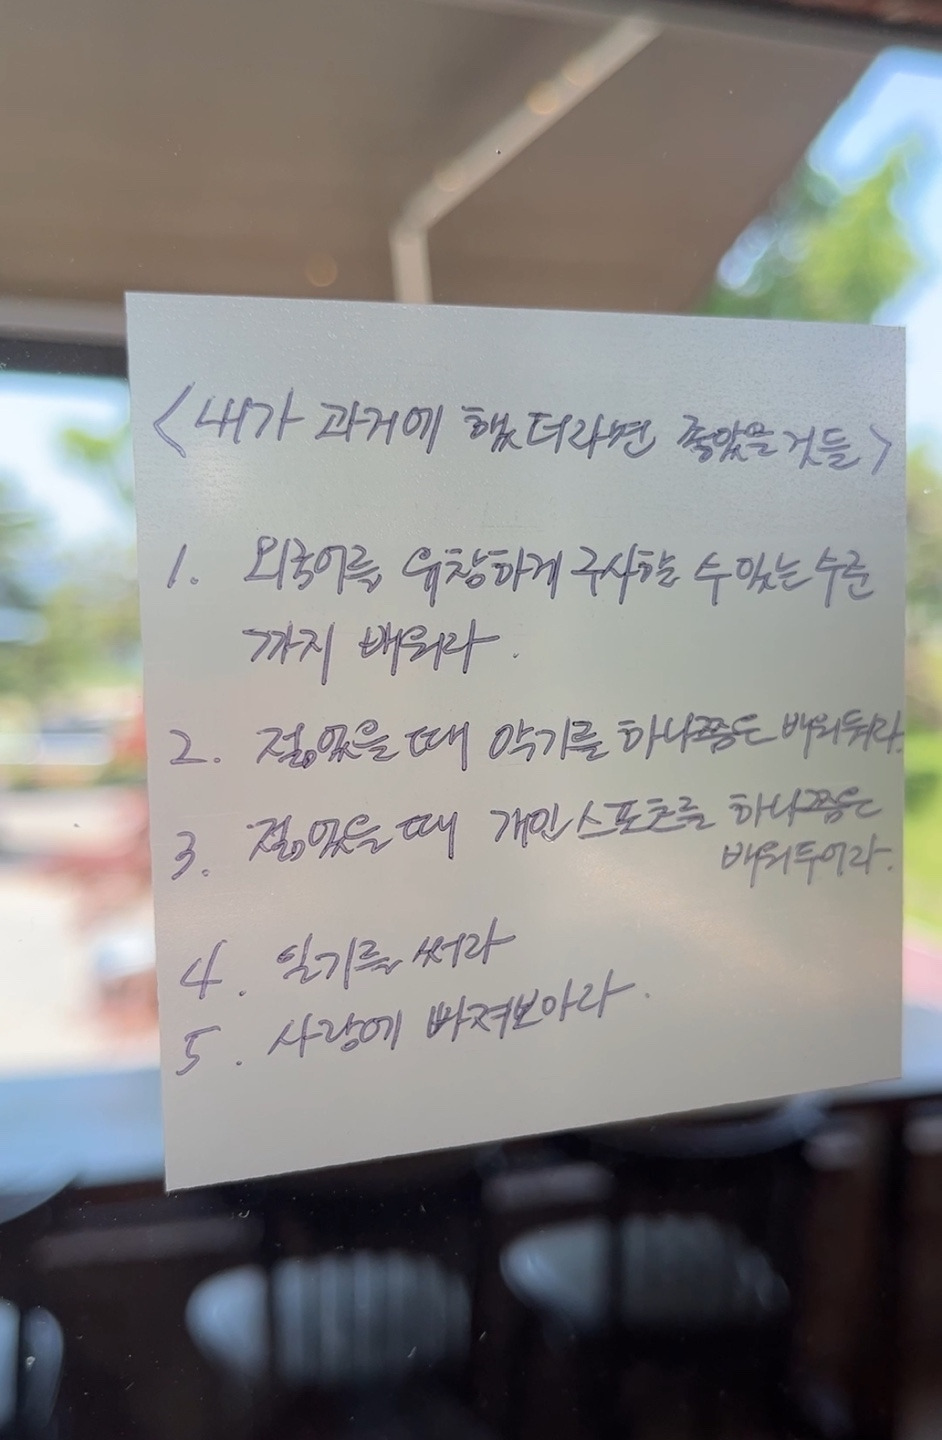 <내가 과거에 했더라면 좋았을 것들>
1. 외국어를 유창하게 구사할 수 있는 수준
까지 배워라.
2. 젊었을 때 악기를 하나쯤은 배워둬라.
3. 젊었을 때 개인스포츠를 하나쯤은
배워두어라.
4. 일기를 써라
5. 사랑에 빠져보아라.